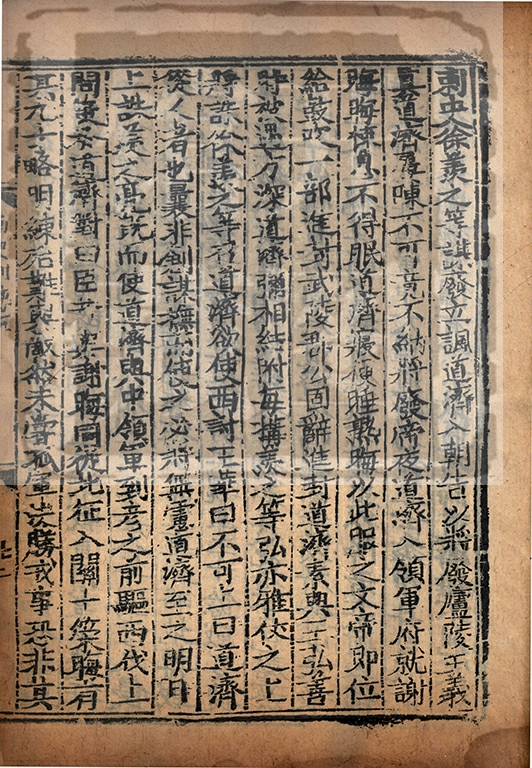 刺史徐羨之等謀廢立諷道濟入朝告以將廢廬陵王義
真道濟屢陳不可竟不納將廢帝夜道濟入領軍府就謝
晦晦悚息不得眠道濟寢便睡熟晦以此服之文帝即位
給鼓吹一部進封武陵郡公固辭進封道濟素與王弘善
時被遇方深道濟彌相結附每搆羨之等弘亦雅仗之上
將誅徐羨之等召道濟欲使西討王華曰不可上曰道濟
從人者也曩非創謀撫而使之必將無慮道濟至之明日
上誅羨之亮既而使道濟與中領軍到彥之前驅西伐上
問策於道濟對曰臣昔與謝晦同從北征入關十策晦有
其九才略明練殆難與敵然未嘗孤軍決勝戎事恐非其